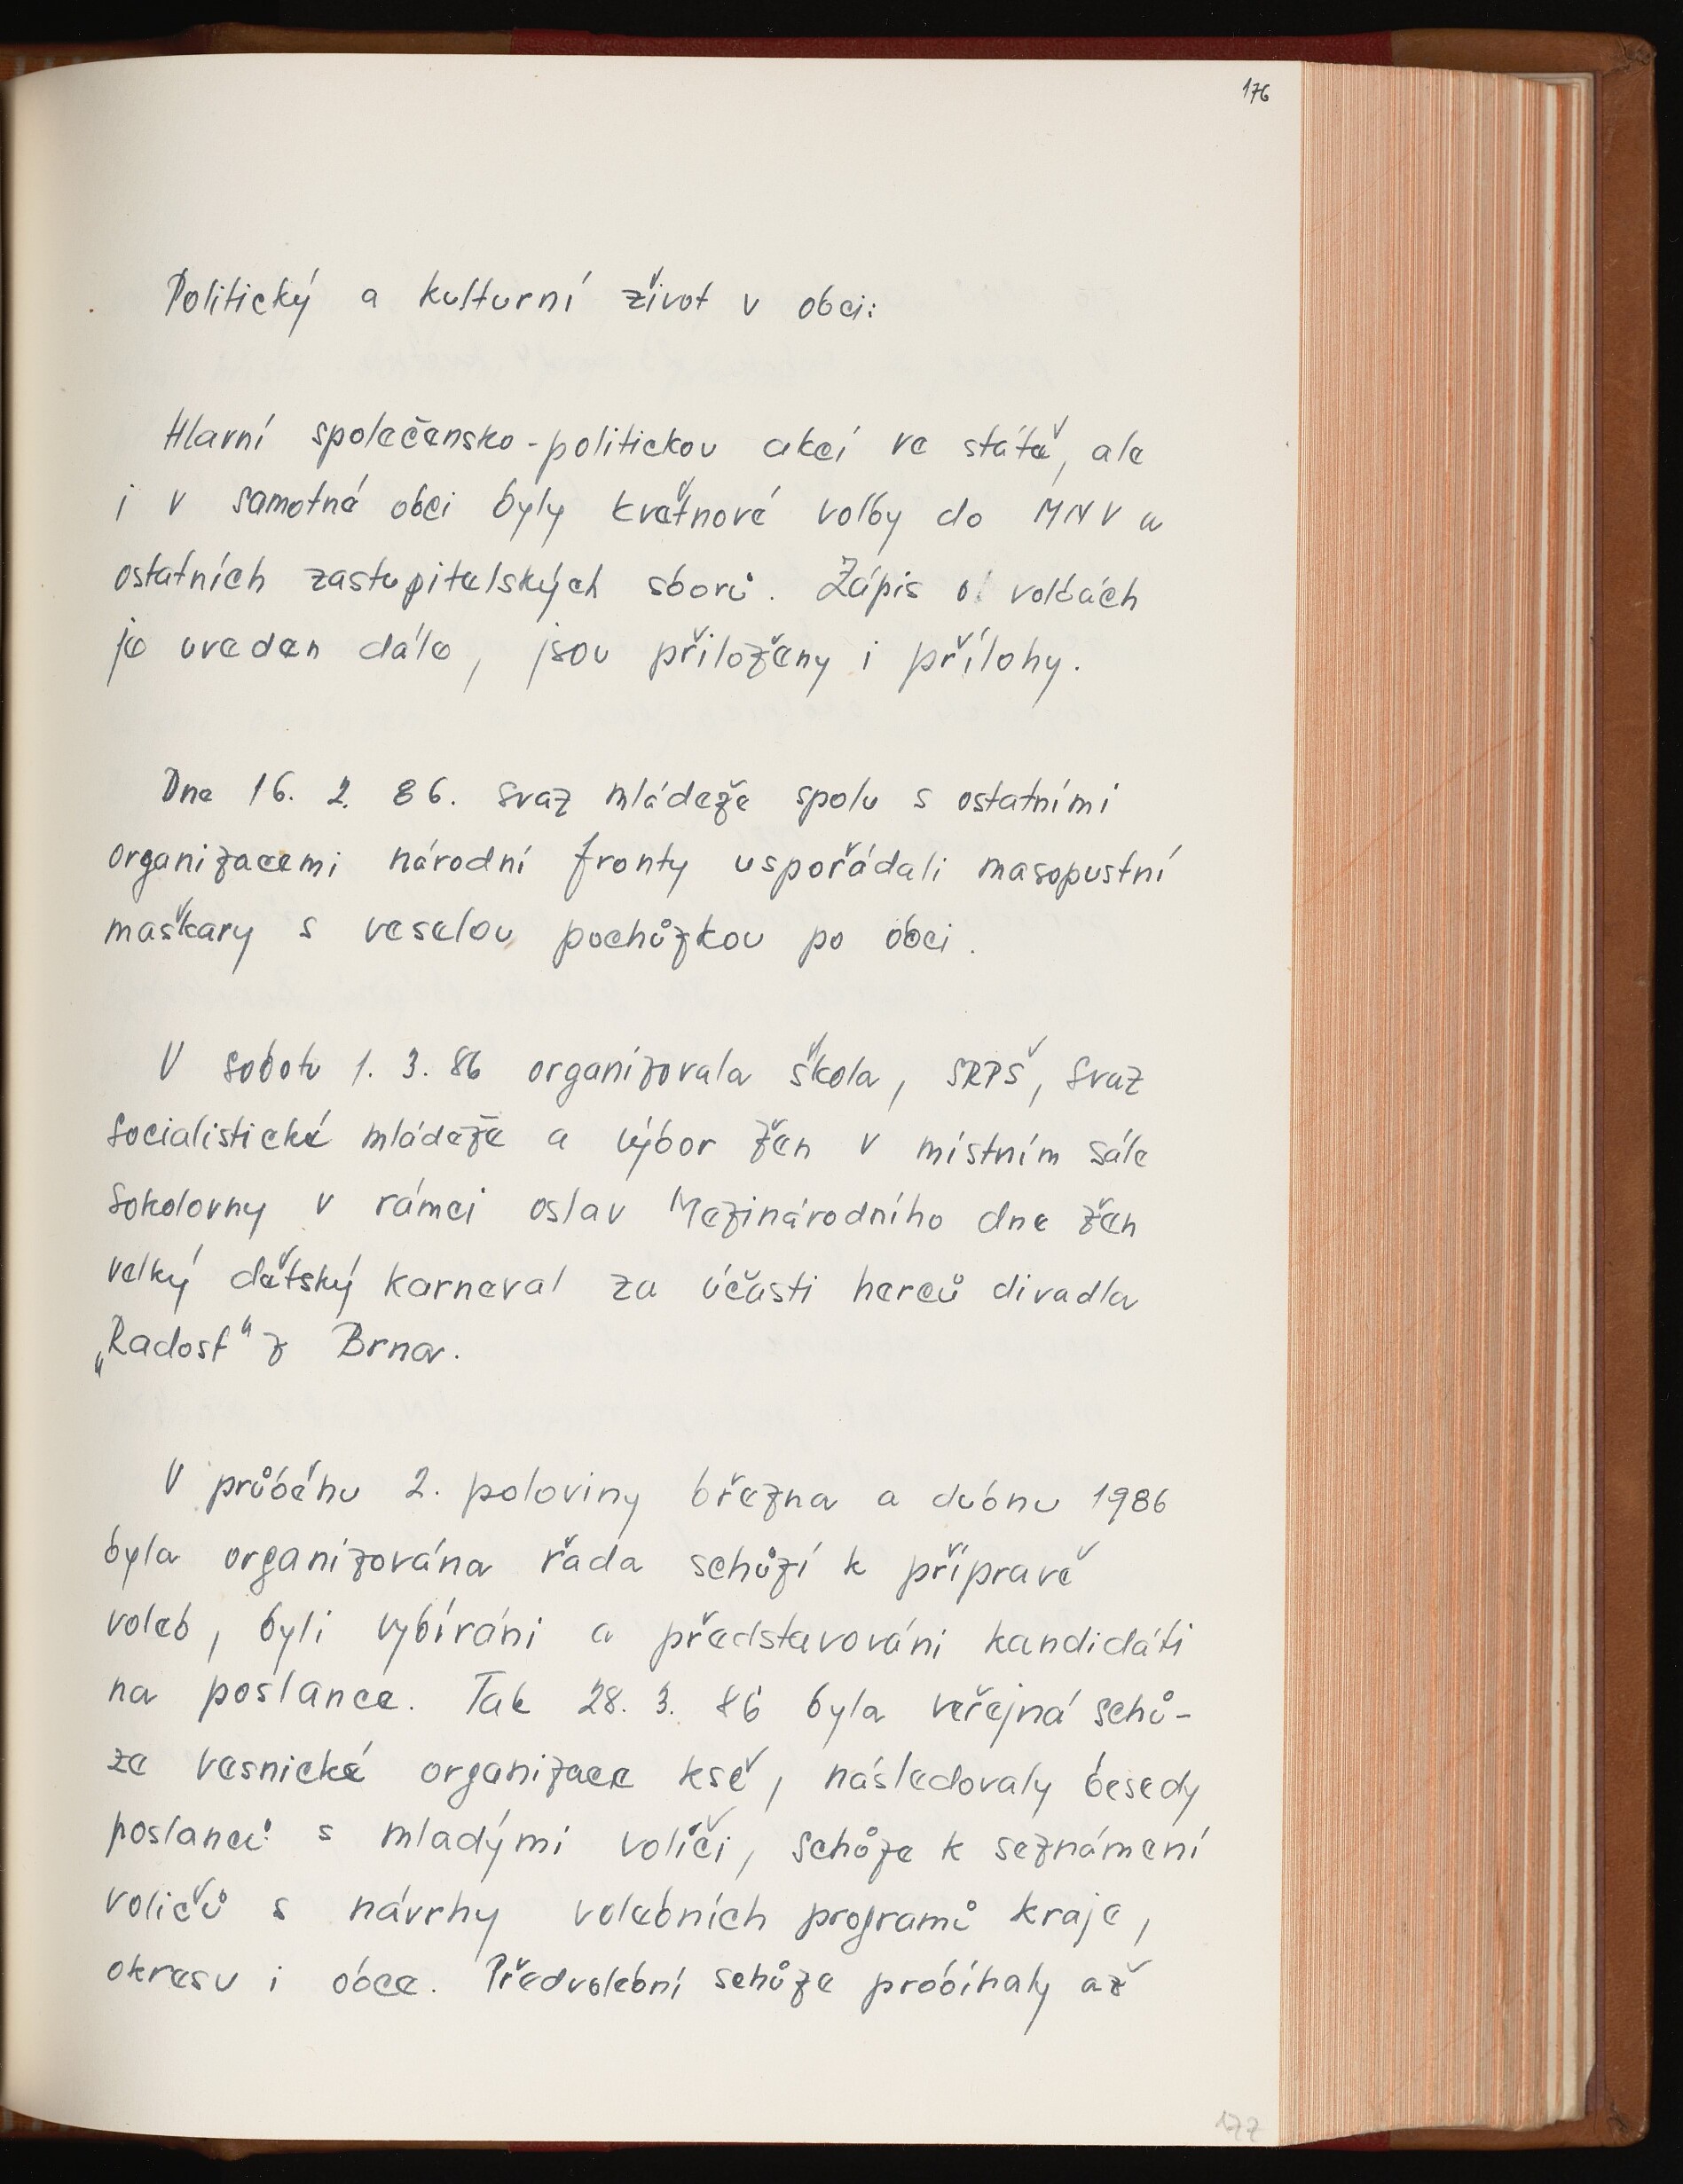 176
Politický a kulturní život v obci:
Hlavní společensko-politickou akcí ve státě, ale
i v samotné obci byly květnové volby do MNV a
ostatních zastupitelských sborů. Zápis o volbách
je uveden dále, jsou přiloženy i přílohy.
Dne 16. 2. 86. svaz mládeže spolu s ostatními
organizacemi národní fronty uspořádali masopustní
maškary s veselou pochůzkou po obci.
V sobotu 1. 3. 86 organizovala škola, SRPŠ, Svaz
socialistické mládeže a výbor žen v místním sále
Sokolovny v rámci oslav Mezinárodního dne žen
velký dětský karneval za účasti herců divadla
„Radost" z Brna.
V průběhu 2. poloviny března a dubnu 1986
byla organizována řada schůzí k přípravě
voleb, byli vybíráni a představováni kandidáti
na poslance. Tak 28. 3. 86 byla veřejná schů-
ze vesnické organizace ksč, následovaly besedy
poslanců s mladými voliči, schůze k seznámení
voličů s návrhy volebních programů kraje,
okresu i obce. Předvolební schůze probíhaly až
177